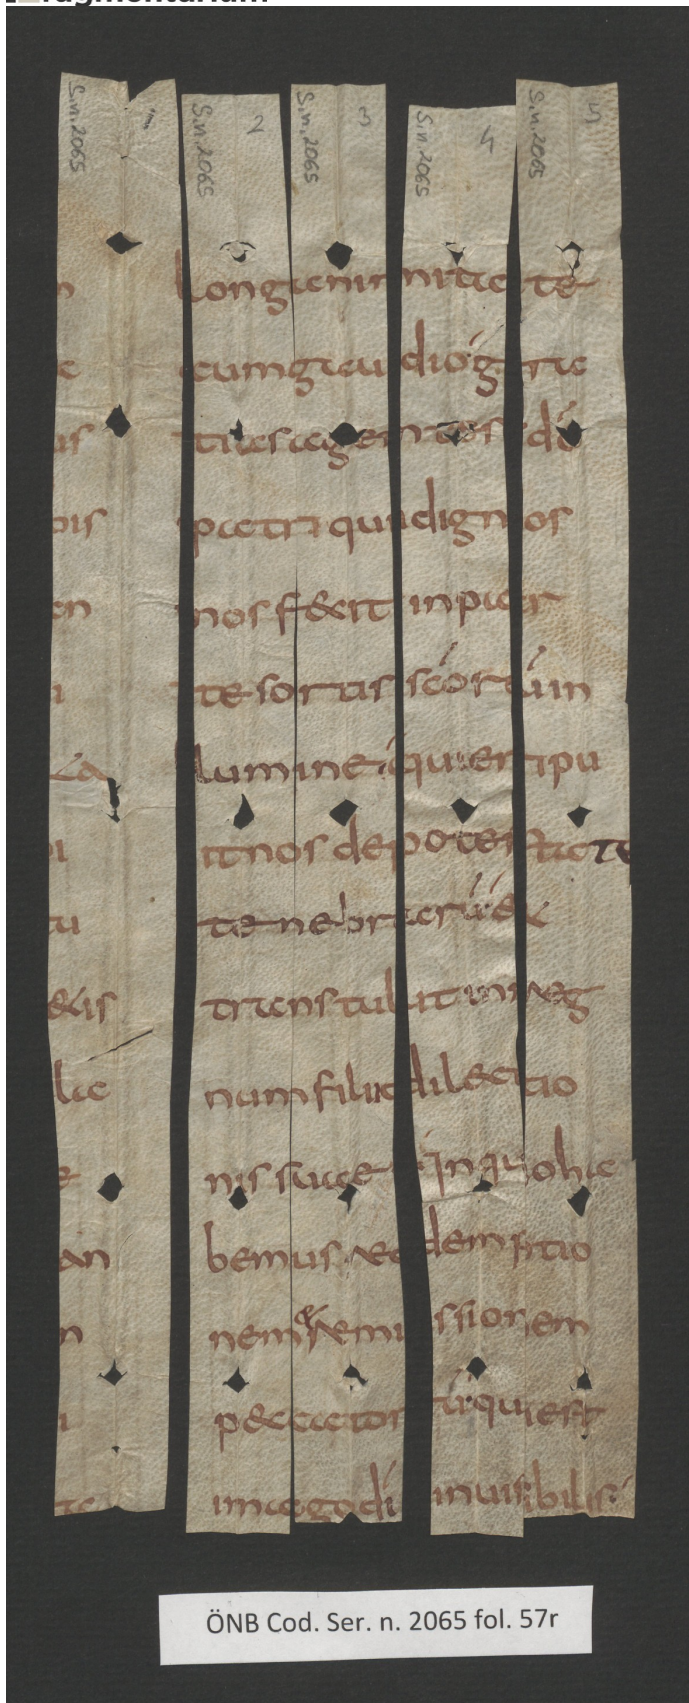 fragmentarium
S.n. 2065 1
S.n. 2065 2
S.n. 2065 3
S.n. 2065 4
S.n. 2065 5
n
e
us
bis
en
i
i
tu
&is
lae
e
an
n
i
te
longanimitate
cum gaudio gra
tias agentes dō
patri qui dignos
nos fecit in par
te sortis scōrū in
lumine qui eripu
it nos de potestate
tenebrarū &
transtulit in reg
num filii dilectio
nis suae in quo ha
bemus redemptio
nem remissionem
peccatorū qui est
imago dī inuisibilis
ÖNB Cod. Ser. n. 2065 fol. 57r